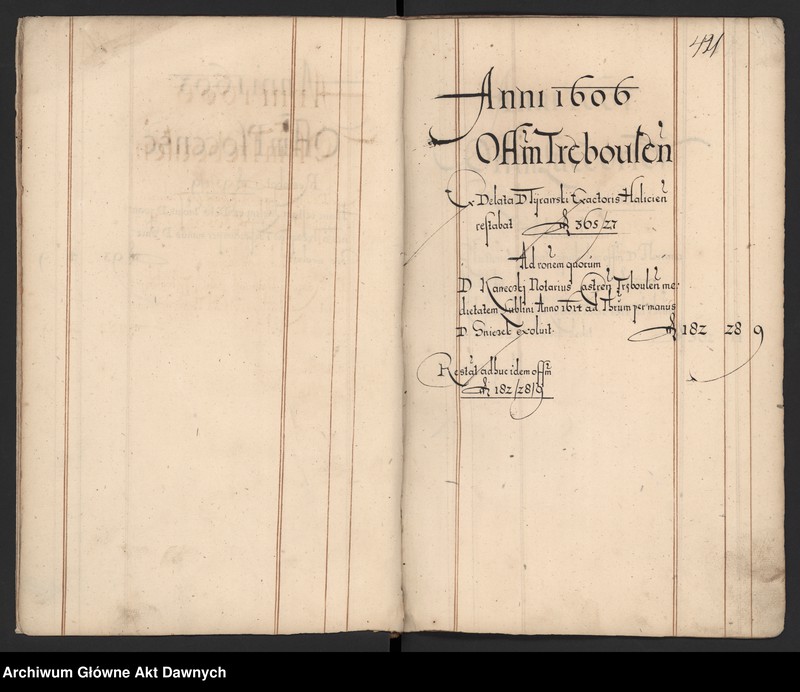 421
Anni 1606
Offm Tręboulen
Ex Delata D Tyranski Exactoris Halicien
restabat fl 365/27
Ad ronem quorum
D Kaneoski Notarius Castren Tręboulen me
dietatem Lublini Anno 1614 ad Thrum per manus
D Sniezek exoluit fl 182 28 9
Restat adhuc idem offm
fl 182/28/9
Archiwum Główne Akt Dawnych